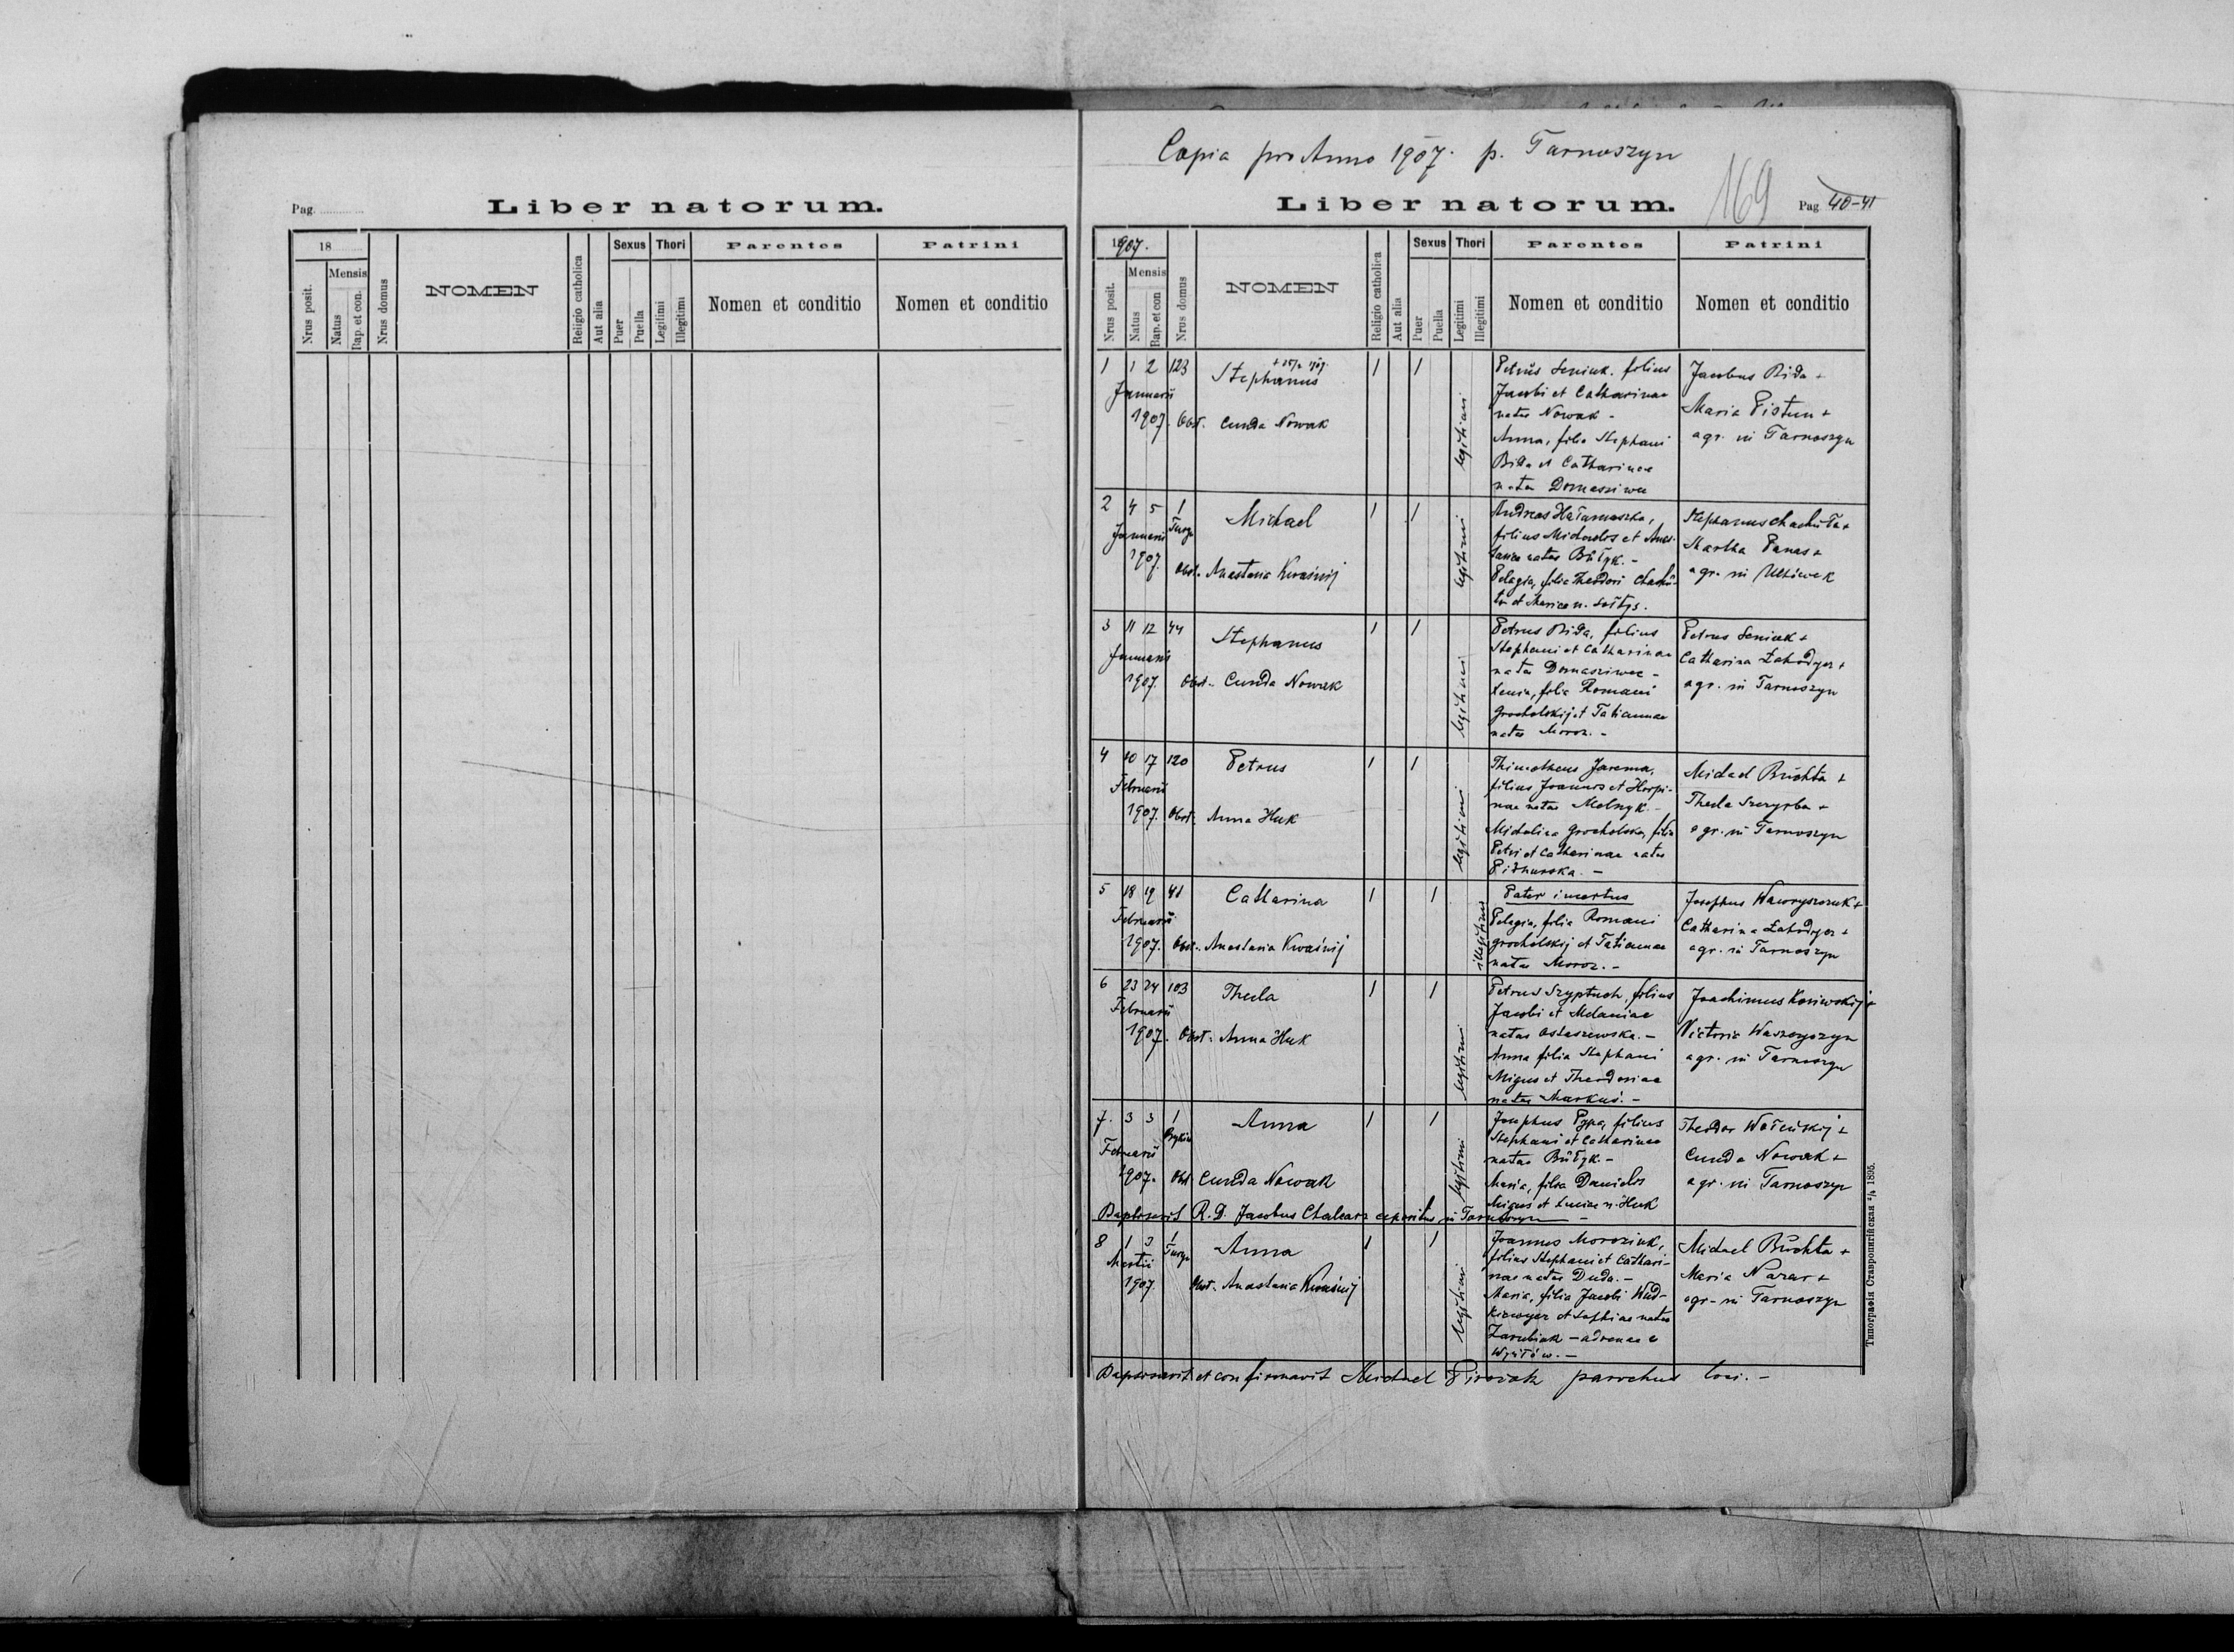 Pag.
Liber natorum.
18
Nrus posit.
Mensis
Natus
Bap. et con.
Nrus domus
NOMEN
Religio catholica
Aut alia
Sexus
Puer
Puella
Thori
Legitimi
Illegitimi
Parentes
Nomen et conditio
Patrini
Nomen et conditio
Copia pro Anno 1907. p. Tarnoszyn
169
Liber natorum.
Pag 40-41
1907.
Nrus posit.
Mensis
Natus
Bap. et con
Nrus domus
NOMEN
Religio catholica
Aut alia
Sexus
Puer
Puella
Thori
Legitimi
Illegitimi
Parentes
Nomen et conditio
Patrini
Nomen et conditio
1 1 2 123
Januarii
1907.
Stephanus
Obst. Cunda Nowak
1 1
legitimi
Petrus Seniuk. filius
Jacobi et Catharinae
natae Nowak -
Anna, filia Stephani
Bida et Catharinae
natae Domasziwec
Jacobus Bida +
Maria Pistun +
agr. in Tarnoszyn
2 4 5 1
Januarii
1907.
Michael
Obst. Anastasia Kwaśnij
1 1
legitimi
Andreas Hałamaszka,
filius Michaelis et Anas-
natae Búłyk. -
Pelagia, filia Theodori
et Mariae n. Sołtys.
Stephanus
Martha Panas +
agr. in Uhńwek
3 11 12 44
Januarii
1907.
Stephanus
Obst. Cunda Nowak
1 1
legitimi
Petrus Bida, filius
Stephani et Catharinae
natae Domasziwec -
Xenia, filia Romani
Grocholskij et Tatiannae
natae Moroz. -
Petrus Seniuk +
Catharina Zahodyez +
agr. in Tarnoszyn
4 10 17 120
Februarii
1907.
Petrus
Obst. Anna Huk
1 1
legitimi
Thimotheus Jarema,
filius Joannis et Horpi-
nae natae Melnyk. -
Michalina Grocholska, filia
Petri et Catharinae natae
Pidhurska. -
Michael Buchta +
Thecla Szczyrba +
agr. in Tarnoszyn
5 18 19 41
Februarii
1907.
Catharina
Obst. Anastasia Kwaśnij
1 1
illegitimi
Pater incertus
Pelagia, filia Romani
Grocholskij et Tatiannae
natae Moroz. -
Josephus Wawryszczuk +
Catharina Zahodyez +
agr. in Tarnoszyn
6 23 24 103
Februarii
1907.
Thecla
Obst. Anna Huk
1 1
legitimi
Petrus Szyptuch, filius
Jacobi et Melaniae
natae Ostaszewska. -
Anna filia Stephani
Migus et Theodosiae
natae Markuś. -
Joachimus Kosiwskij +
Victoria Waszczyszyn
agr. in Tarnoszyn
7. 3 3 1
Februarii
1907.
Anna
Obst. Cunda Nowak
1 1
legitimi
Josephus Pypa, filius
Stephani et Catharinae
natae Búłyk. -
Maria, filia Danielis
Migus et Luciae n. Huk
Theodor Wołeńskij +
Cunda Nowak +
agr. in Tarnoszyn
Baptisavit R. D. Jacobus expositus in Tarnoszyn -
8 1 3 1
Martii
1907.
Anna
Obst. Anastasia Kwaśnij
1 1
legitimi
Joannes Moroziuk,
filius Stephani et Cathari-
nae natae Duda. -
Maria, filia Jacobi
et Sophiae natae
Zarubiuk - advenae e
Michael Buchta +
Maria Nazar +
agr. in Tarnoszyn
Baptisavit et confirmavit Michael Pirożak parochus loci. -
Типографія Ставропигійская 1895.